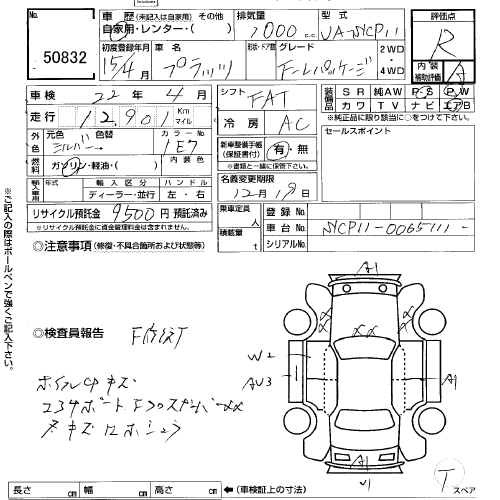 50832
車歴 (未記入は自家用) その他
自家用・レンター・( )
排気量 1000 c.c.
型式 UA-NCP11
評価点 R
内装補助評価 A
初度登録年月 15/4
車名 プラッツ
形状・ドア数
グレード Fーレパッケージ
2WD・4WD
車検 22年4月
シフト FAT
装備品 SR 純AW P・S P・W
カワ TV ナビ エアB
※純正品に限り該当に○をつけて下さい。
走行 12,901 Km マイル
冷房 AC
セールスポイント
外色 元色 シルバー 色替 カラーNo 1E7
内装色
燃料 ガソリン・軽油・( )
新車整備手帳(保証書付) 有・無
※書類と一緒に保管下さい。
輸入車 年式 輸入区分 ディーラー・並行 ハンドル 左・右
名義変更期限 12月19日
リサイクル預託金 9500円 預託済み
※リサイクル預託金に資金管理料金は含まれません。
乗車定員 人
積載量 t
登録No.
車台No. NCP11-0065111-
シリアルNo.
◎注意事項 (修復・不具合箇所および状態等)
◎検査員報告
ホイルCPキズ
※ご記入の際はボールペンで強くご記入下さい。
A1
XX
XX
XX
W2
AU3
A1
A1
T スペア
長さ cm 幅 cm 高さ cm ←(車検証上の寸法)